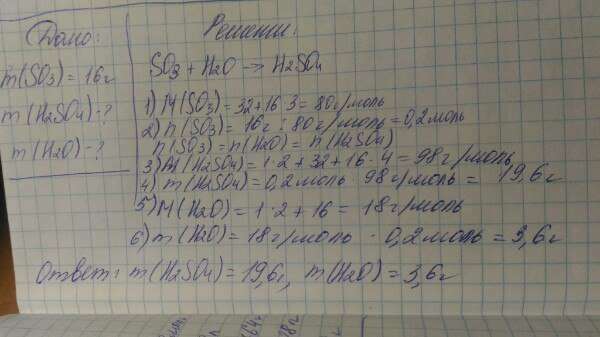 Дано:
m(SO3) = 16г
m(H2SO4)-?
m(H2O)-?
Решение:
SO3 + H2O → H2SO4
1) M(SO3) = 32+16·3 = 80г/моль
2) n(SO3) = 16г : 80г/моль = 0,2моль
n(SO3) = n(H2O) = n(H2SO4)
3) M(H2SO4) = 1·2+32+16·4 = 98г/моль
4) m(H2SO4) = 0,2моль · 98г/моль = 19,6г
5) M(H2O) = 1·2+16 = 18г/моль
6) m(H2O) = 18г/моль · 0,2моль = 3,6г
Ответ: m(H2SO4) = 19,6г, m(H2O) = 3,6г